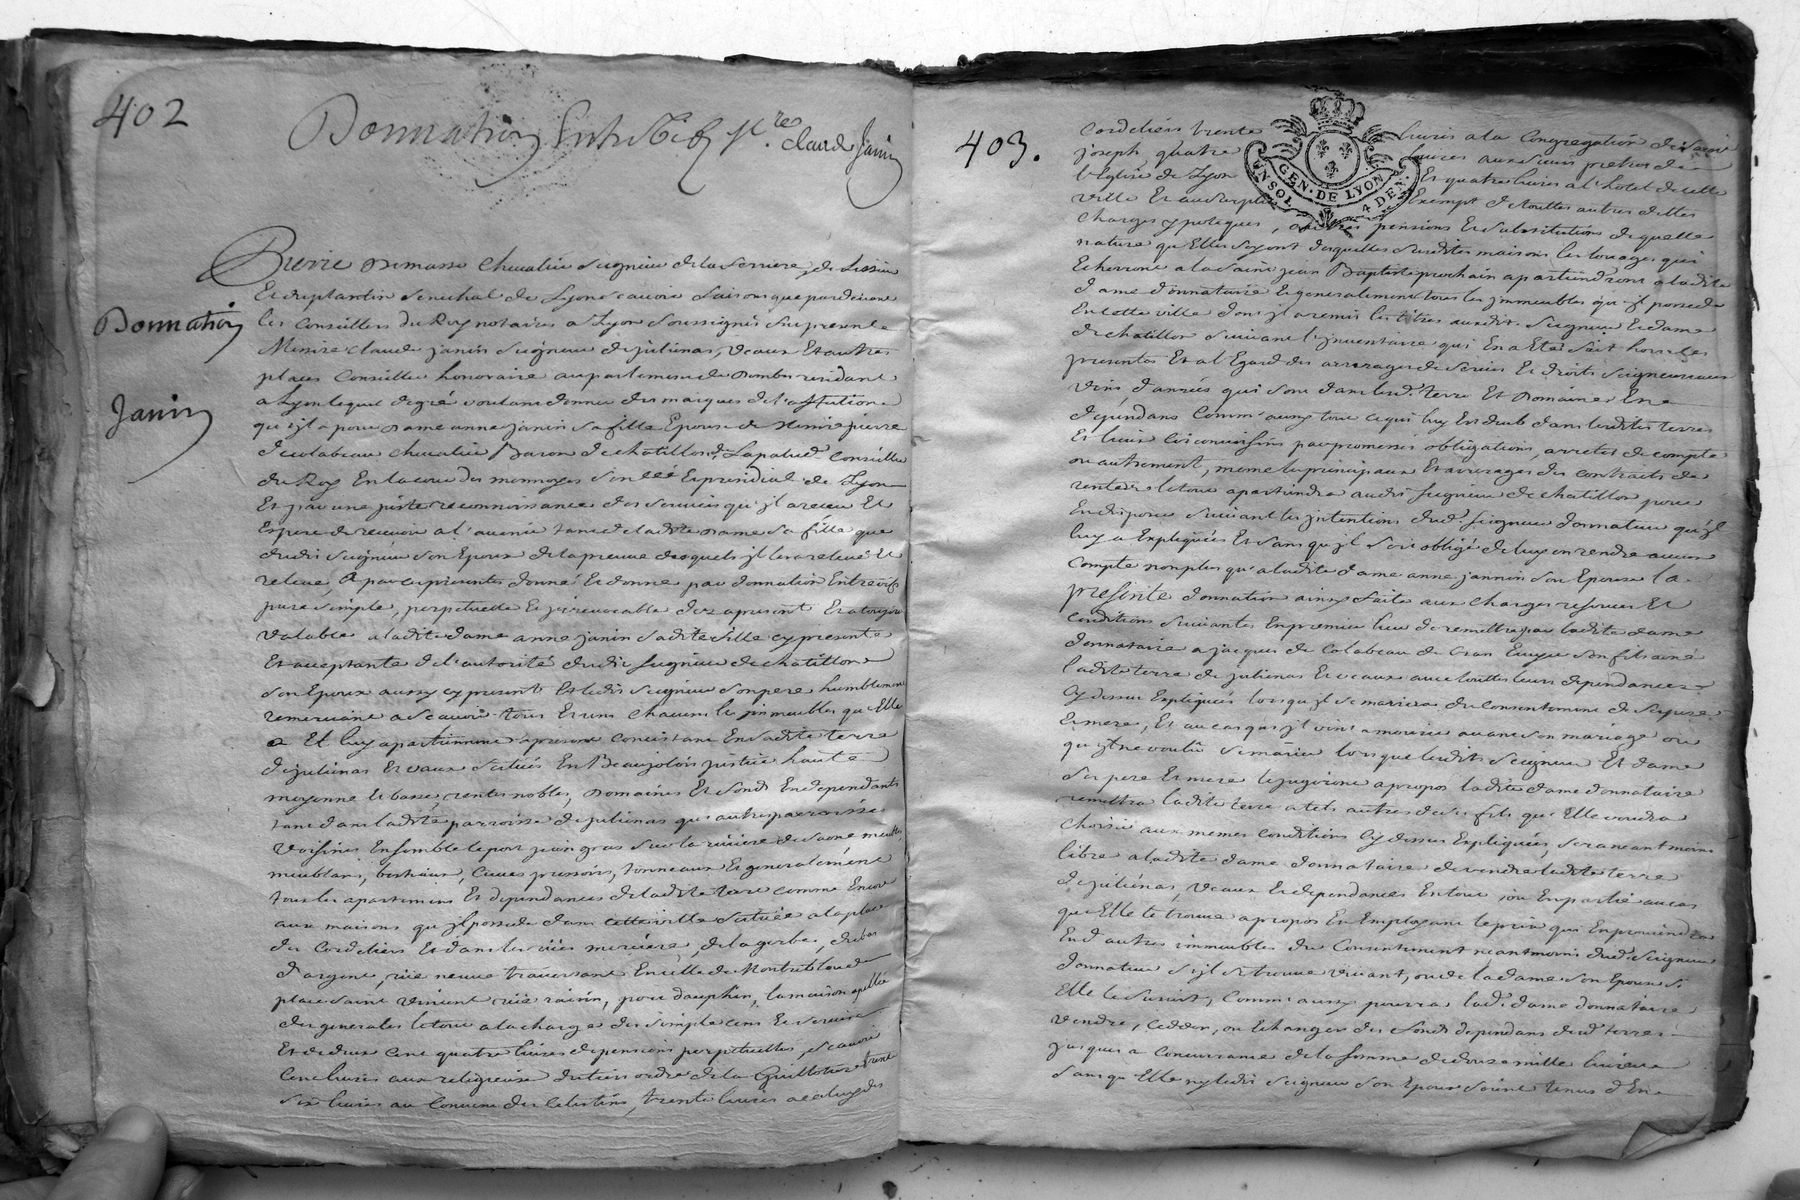 402
Donnation Entre vifs Mre. claude Janin
Donnation
Janin
Pierre Demasso chevalier seigneur de la ferriere, de Lissieu
Et du plantin senechal de Lyon scavoir faisons que pardevant
les Conseillers du Roy notaires a Lyon soussignés fut present
Messire claude janin seigneur de julienas, vcaux Et autres
places Conseiller honoraire au parlement de Dombes residant
a Lyon lequel de gré voulant donner des marques de l'affection
qu'il a pour Dame anne janin sa fille Epouse de Messire pierre
de colabeau chevalier Baron de chatillon de Lapalud Conseiller
du Roy En la cour des monnoyes senéé Et presidial de Lyon
Et par une juste reconnoissance des services qu'jl a receu Et
Espere de recevoir a l'avenir tant de ladite Dame sa fille que
dudit seigneur son Epoux de la preuve desquels jl les a relevé Et
releve, a par ces presentes donné Et donne par donnation Entrevifs
pure simple, perpetuelle Et jrrevocable dez apresent Et a toujours
valable a ladite dame anne janin sadite fille cy presente
Et acceptante de l'autorité dudit seigneur de chatillon
son Epoux aussy cy present Et ledit seigneur son pere humblement
remerciant a scavoir tous Et uns chacuns les jmmeubles qu'Elle
a Et luy apartiennent apresent consistant En sadite terre
de julienas Et vaux situés En Beaujolois justice haute
moyenne Et basse, rentes nobles, Domaines Et fonds En dependants
tant dans ladite parroisse de julienas que autres parroisses
voisines Ensemble le port jean gras sur la riviere de saone meubles
meublans, bestiaux, cuves pressoirs, tonneaux Et generalement
tous les apartemens Et dependances de ladite terre comme Encore
aux maisons qu'jl possede dans cette ville situées a la place
des Cordeliers Et dans les rües merciere, de la gerbe, du bas
d'argent, rüe neuve traversant En celle de Montribloud
place saint vincent rüe raisin, pour dauphin, la maison apellée
des generales le tout a la charge des simple cens Et servis
Et de deux cent quatre livres de pensions perpetuelles, scavoir
cent livres aux religieux du tiers ordre de la Guillotiere trente
six livres au Couvent des Celestins, trente livres a celuy des
403.
Cordeliers trente livres a la Congregation de
joseph quatre livres aux sieurs pretres de
l'Eglise de Lyon Et quatre livres a l'hotel de cette
ville Et au surplus Exempt de touttes autres dettes
charges ypoteques, autres pensions Et substitutions de quelle
nature qu'Elles soyent desquelles susdites maisons les louages qui
Echerront a la saint jean Baptiste prochain apartiendront a ladite
dame donnataire Et generalement tous les jmmeubles qu'jl possede
En cette ville dont jl a remis les titres audit seigneur Et dame
de chatillon suivant l'jnventaire qui En a Eté fait hors les
presentes Et a l'Egard des arrerages de servis Et droits seigneuriaux
vins, danrées qui sont dans lesd. terre Et Domaines En
dependans Comm'aussy tout ce qui luy Est deub dans lesdites terres
Et lieux circonvoisins par promesses obligations, arretés de compte
ou autrement, meme les principaux Et arrerages des contrats de
rente le tout apartiendra audit seigneur de chatillon pour
En disposer suivant les jntentions dudt. seigneur donnateur qu'jl
luy a Expliquées Et sans qu'jl soit obligé de luy en rendre aucun
compte non plus qu'a ladite dame anne jannin son Epouse la
presente donnation ainsy faite aux charges reserves Et
conditions suivantes En premier lieu de remettre par ladite dame
donnataire a jacques de Colabeau de son fils ainé
ladite terre de julienas Et vaux avec touttes leurs dependances
cy dessus Expliqués lorsqu'jl se mariera du Consentement de ses pere
Et mere, Et au cas qu'jl vint a mourir avant son mariage ou
qu'jl ne voulu se marier lorsque lesdits seigneur Et dame
ses pere Et mere le jugeront a propos ladite dame donnataire
remettra ladite terre a tels autres de ses fils qu'Elle voudra
choisir aux memes conditions cy dessus Expliquées, sera neantmoins
libre a ladite dame donnataire de vendre ladite terre
de julienas, vcaux Et dependances En tout ou En partie au cas
qu'Elle le trouve a propos En Employant le prix qui En proviendra
En d'autres immeubles du Consentement neantmoins dudt. seigneur
donnateur s'jl se trouve vivant, ou de la dame son Epouse si
Elle le survit, Comm'aussy pourra lad. dame donnataire
vendre, cedder, ou Echanger des fonds dependans desdt. terres
jusques a Concurrance de la somme de douze mille livres
sans qu'Elle ny ledit seigneur son Epoux soient tenus d'En
GEN. DE LYON
UN SOL 4 DEN.